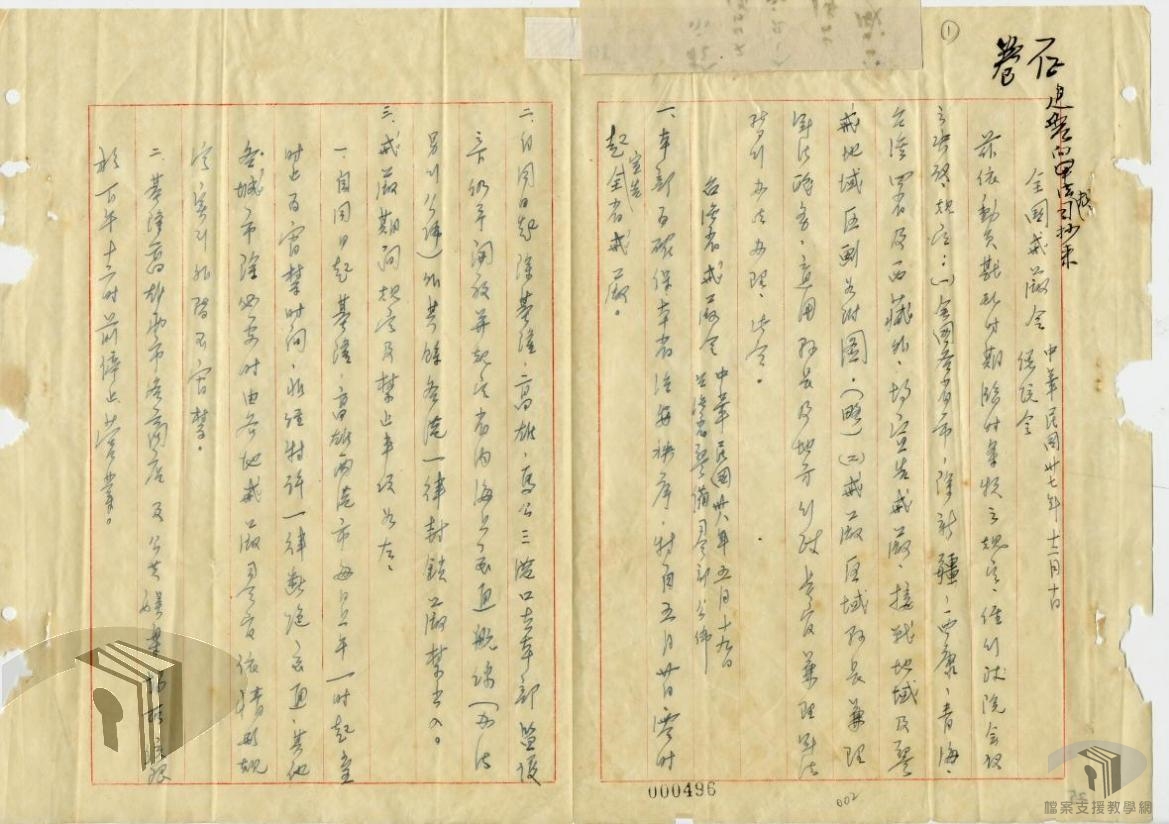 存卷
全國戒嚴令 中華民國卅七年十二月十日
總統令
茲依動員戡亂時期臨時條款之規定，經行政院會議
之決議，規定：(一)全國各省市，除新疆、西康、青海、
台灣四省及西藏外，均宣告戒嚴，接戰地域及警
戒地域區劃如附圖。(略)(二)戒嚴區域內長兼理
軍法
辦法辦理，此令。
台灣省戒嚴令 中華民國卅八年五月十九日
台灣省警備司令部公佈
一、本部為確保本省治安秩序，特自五月廿日零時
起宣告全省戒嚴。
二、自同日起除基隆、高雄、馬公三港口在本部監護
之下仍予開放並規定省內海上交通航線(辦法
另行公佈)外其餘各港一律封鎖嚴禁出入。
三、戒嚴期間規定及禁止事項如左：
一、自同日起基隆、高雄兩港市每日上午一時起至
時止為宵禁時間，非經特許一律斷絕交通，其他
各城市除必要時由各地戒嚴司令官依情形規
定實行外暫不宵禁。
二、基隆高雄兩市各商店及公共娛樂場所應限
於下午十二時前停止營業。
000496
002
①
檔案支援教學網